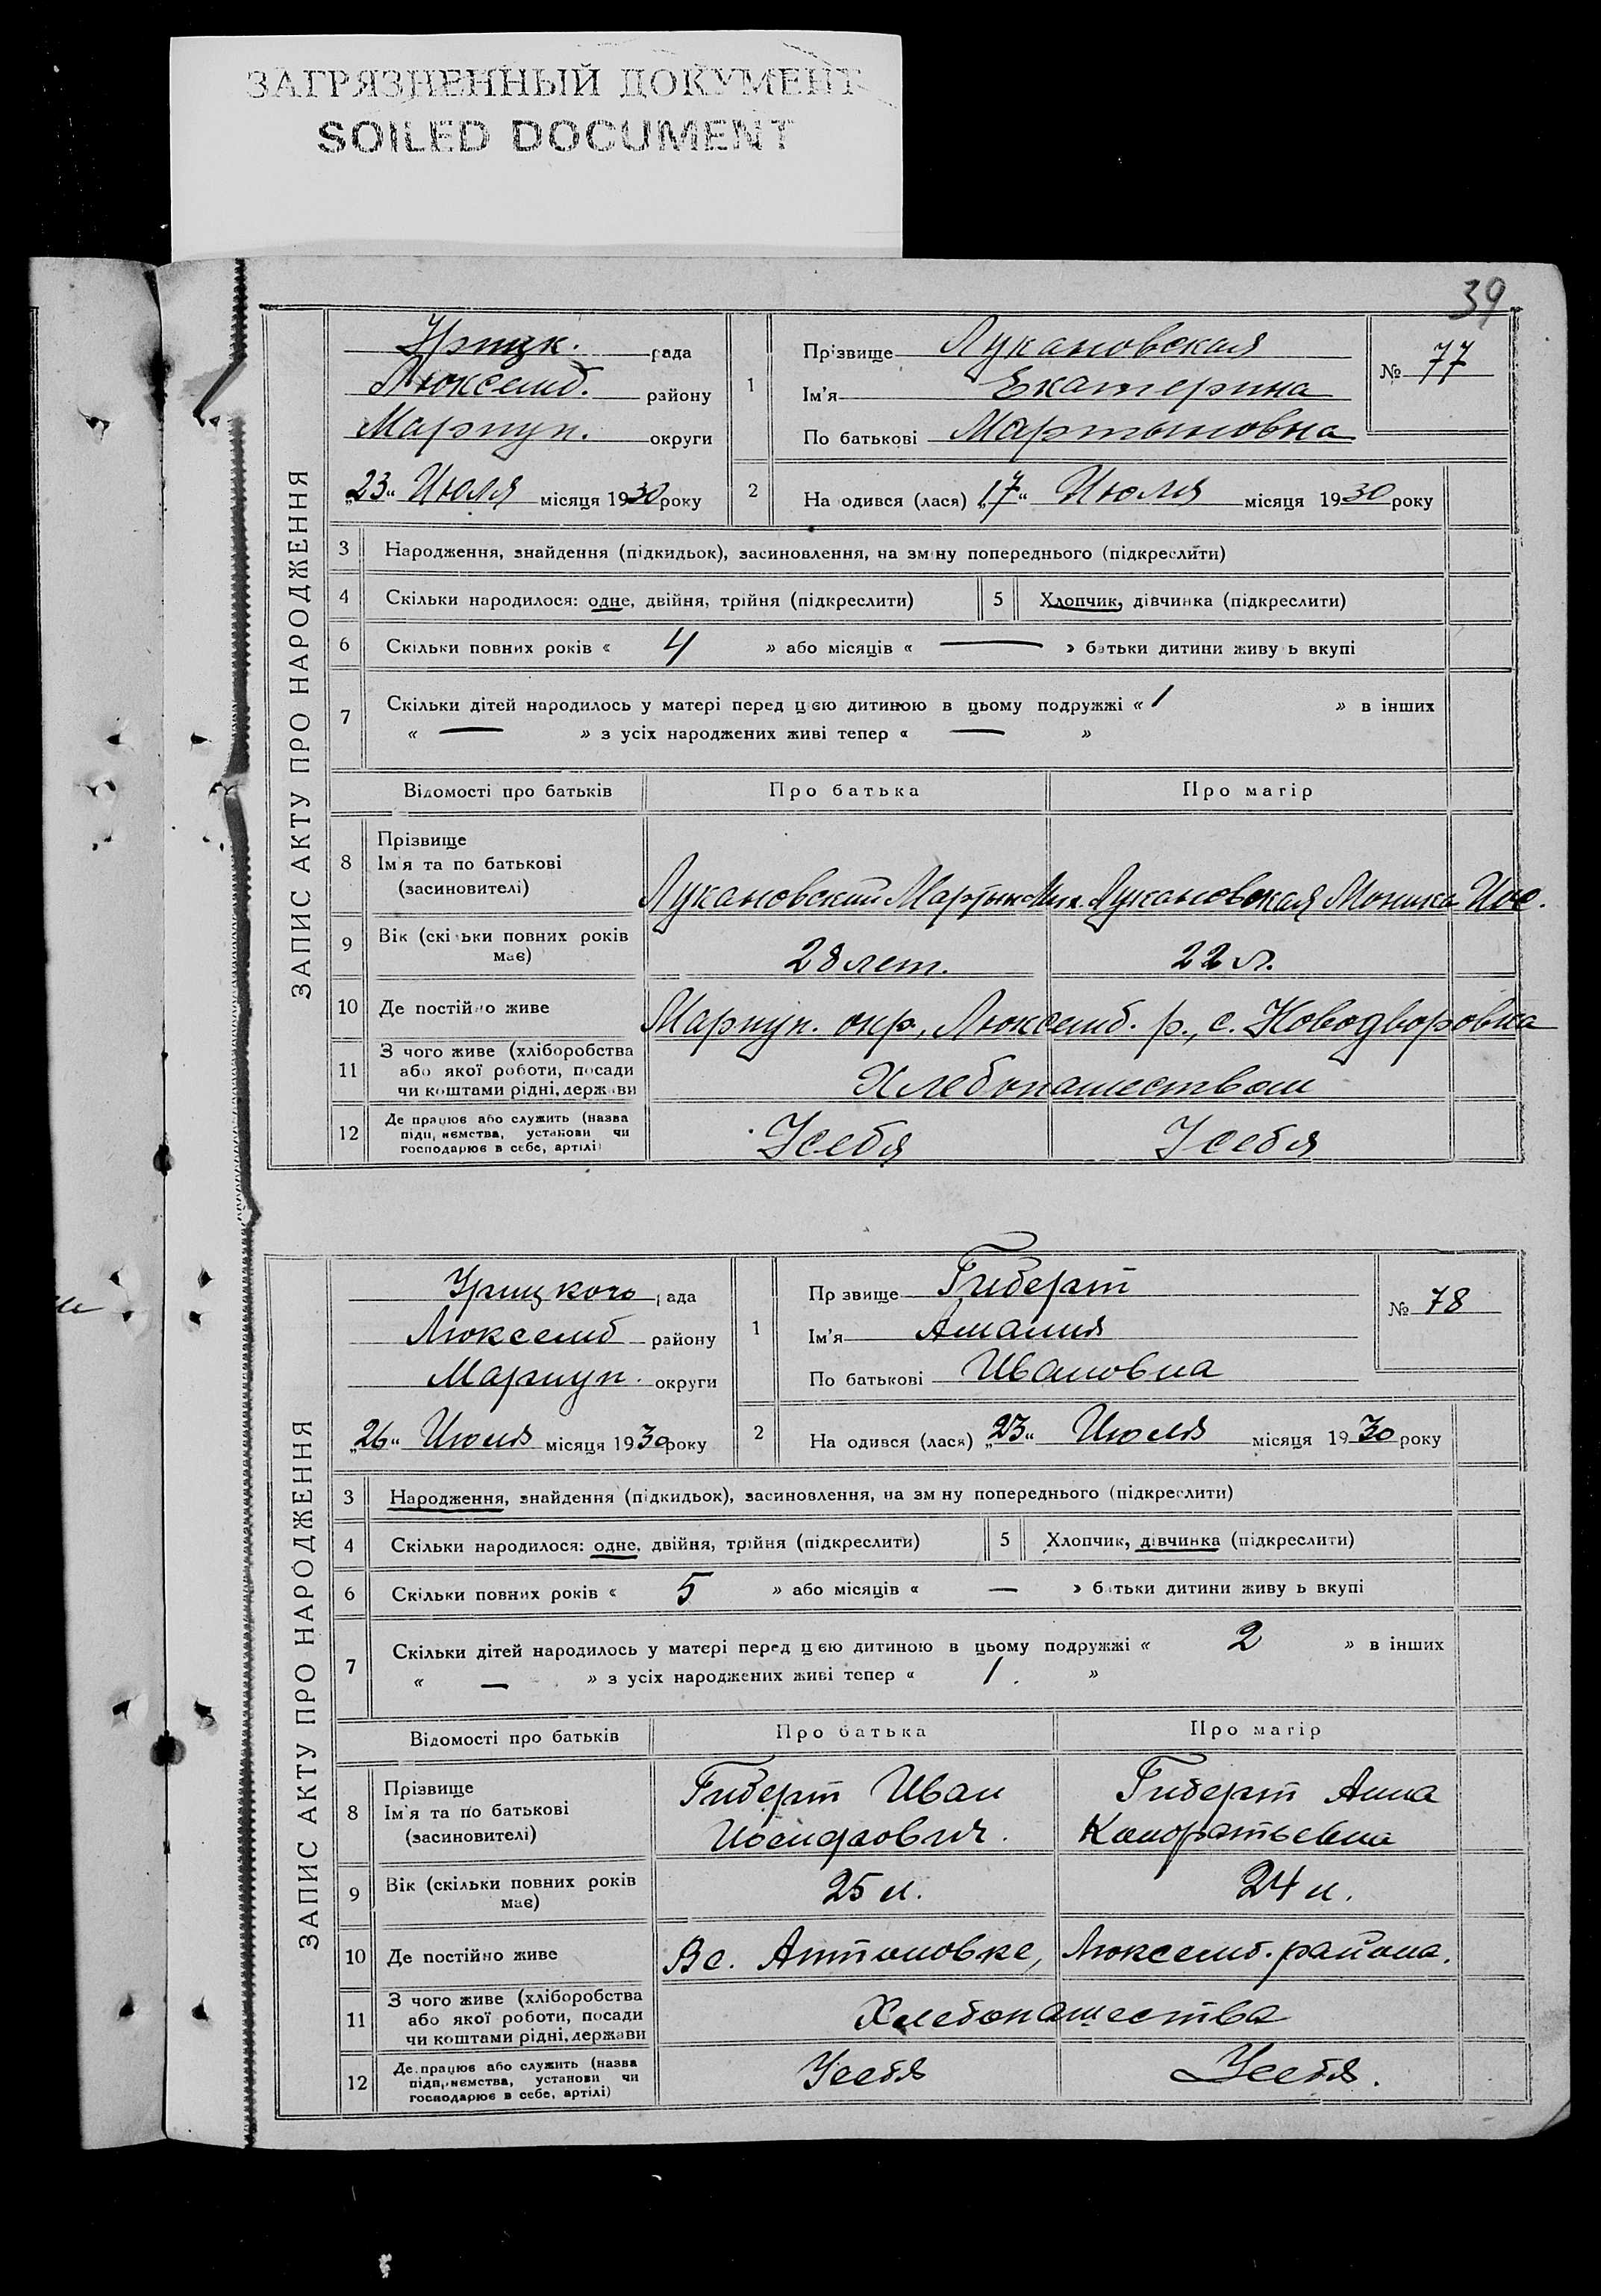 ЗАГРЯЗНЕННЫЙ ДОКУМЕНТ
SOILED DOCUMENT
39
ЗАПИС АКТУ ПРО НАРОДЖЕННЯ
Урицк. рада
Люксемб. району
Мариуп. округи
„23“ Июля місяця 1930 року
1 Прізвище Лукановская
Ім'я Екатерина
По батькові Мартыновна
№ 77
2 На одився (лася) „17“ Июля місяця 1930 року
3 Народження, знайдення (підкидьок), засиновлення, на зм ну попереднього (підкреслити)
4 Скільки народилося: одне, двійня, трійня (підкреслити) 5 Хлопчик, дівчинка (підкреслити)
6 Скільки повних років « 4 » або місяців « — » батьки дитини живу ь вкупі
7 Скільки дітей народилось у матері перед цією дитиною в цьому подружжі « 1 » в інших
« — » з усіх народжених живі тепер « — »
Відомості про батьків Про батька Про матір
8 Прізвище
Ім'я та по батькові
(засиновителі)
Лукановский Мартын Мих. Лукановская Моника Иос.
9 Вік (скі ьки повних років
має)
28 лет. 22 л.
10 Де постійно живе Мариуп. окр., Люксемб. р., с. Новодворовка
11 З чого живе (хліборобства
або якої роботи, посади
чи коштами рідні, держави
Хлебопашеством
12 Де працює або служить (назва
підп, иємства, установи чи
господарює в себе, артілі)
У себя У себя
ЗАПИС АКТУ ПРО НАРОДЖЕННЯ
Урицкого рада
Люксемб району
Мариуп. округи
„26“ Июля місяця 1930 року
1 Пр звище Гиберт
Ім'я Амалия
По батькові Ивановна
№ 78
2 На одився (лася) „23“ Июля місяця 1930 року
3 Народження, знайдення (підкидьок), засиновлення, на зм ну попереднього (підкреслити)
4 Скільки народилося: одне, двійня, трійня (підкреслити) 5 Хлопчик, дівчинка (підкреслити)
6 Скільки повних років « 5 » або місяців « — » батьки дитини живу ь вкупі
7 Скільки дітей народилось у матері перед цією дитиною в цьому подружжі « 2 » в інших
« — » з усіх народжених живі тепер « 1. »
Відомості про батьків Про батька Про матір
8 Прізвище
Ім'я та по батькові
(засиновителі)
Гиберт Иван Гиберт Анна
Иосифович. Кондратьевна
9 Вік (скільки повних років
має)
25 л. 24 л.
10 Де постійно живе В с. Антоновке, Люксемб. района.
11 З чого живе (хліборобства
або якої роботи, посади
чи коштами рідні, держави
Хлебопашества
12 Де працює або служить (назва
підприємства, установи чи
господарює в себе, артілі)
У себя У себя.